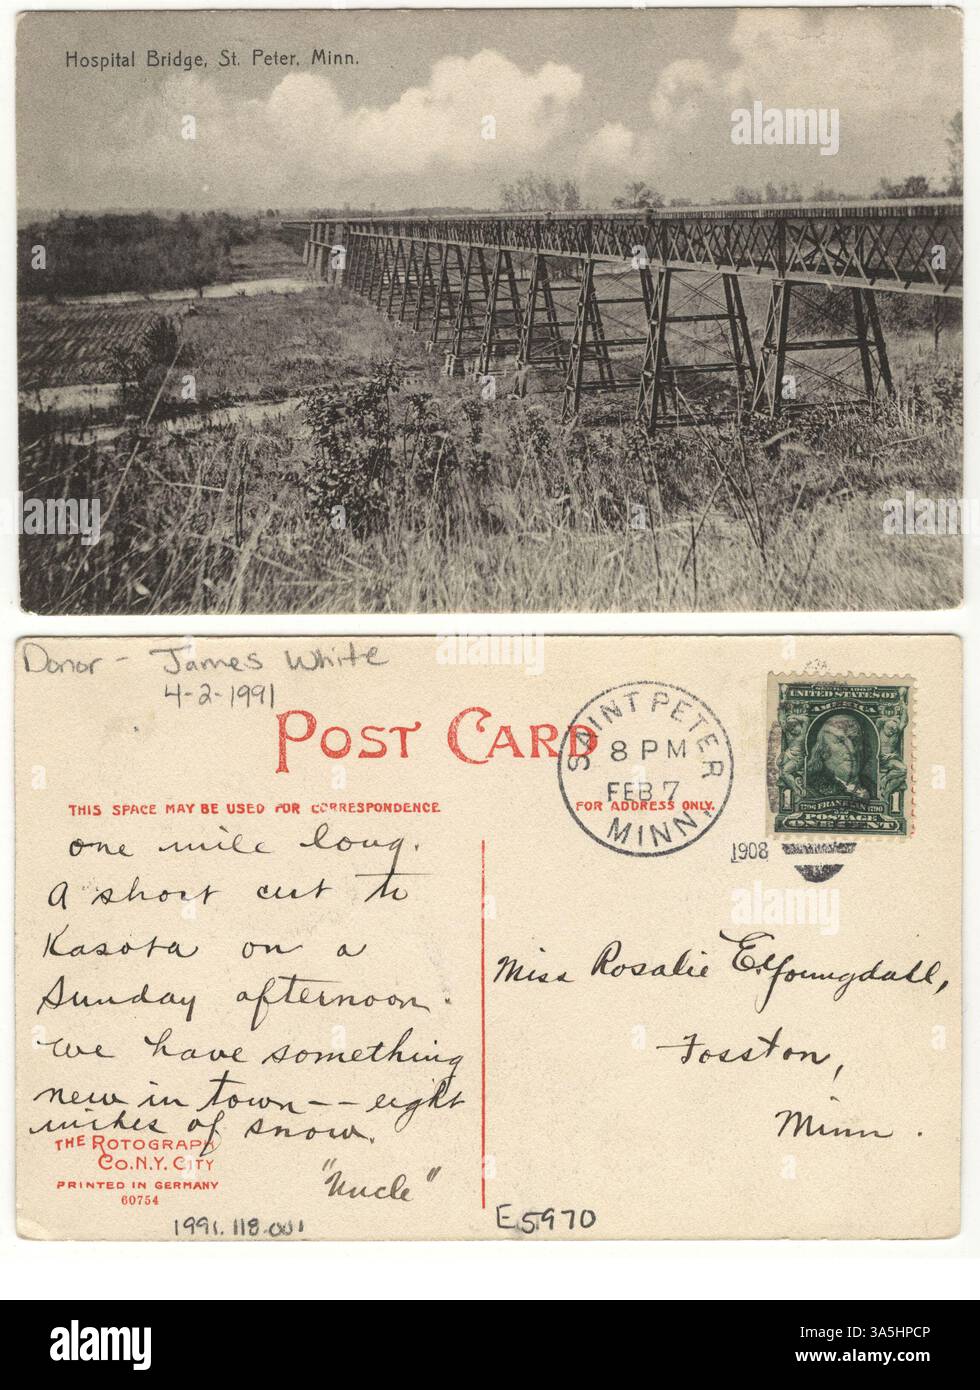 Hospital Bridge, St. Peter, Minn.
a
alamy
a
alamy
Donor - James White
4-2-1991
POST CARD
THIS SPACE MAY BE USED FOR CORRESPONDENCE
FOR ADDRESS ONLY.
SAINT PETER
8 PM
FEB 7
MINN.
1908
SERIES 1902
UNITED STATES OF
AMERICA
1706 FRANKLIN 1790
1 1
POSTAGE
ONE CENT
one mile long.
A short cut to
Kasota on a
Sunday afternoon.
We have something
new in town -- eight
inches of snow.
"Uncle"
Miss Rosalie E. Youngdahl,
Fosston,
Minn.
THE ROTOGRAPH
CO. N.Y. CITY
PRINTED IN GERMANY
60754
1991.118.001
E5970
a
alamy
a
a
alamy
Image ID: 3A5HPCP
www.alamy.com